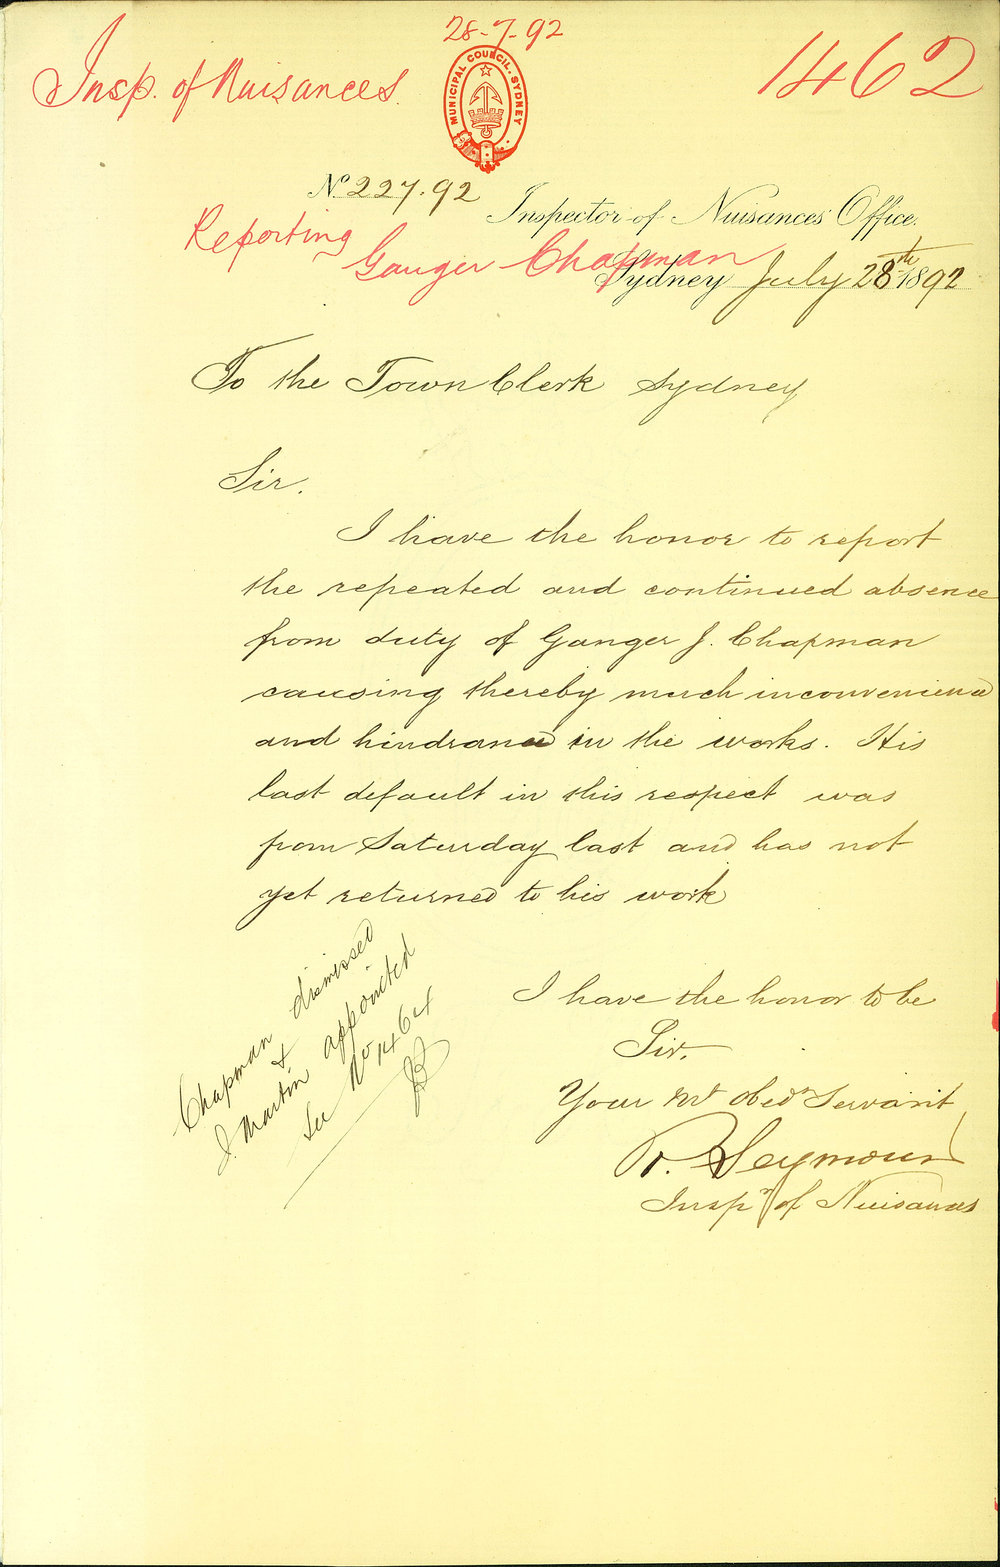 28-7-92
Insp. of Nuisances.
1462
MUNICIPAL COUNCIL. SYDNEY
No 227.92
Inspector of Nuisances Office.
Reporting
Ganger Chapman
Sydney July 28th 1892
To the Town Clerk Sydney
Sir.
I have the honor to report
the repeated and continued absence
from duty of Ganger J. Chapman
causing thereby much inconvenience
and hindrance in the works. His
last default in this respect was
from Saturday last and has not
yet returned to his work
Chapman dismissed
&
J. Martin appointed
See No 1464
I have the honor to be
Sir.
Your Mt Obedt Servant
R. Seymour
Inspr of Nuisances